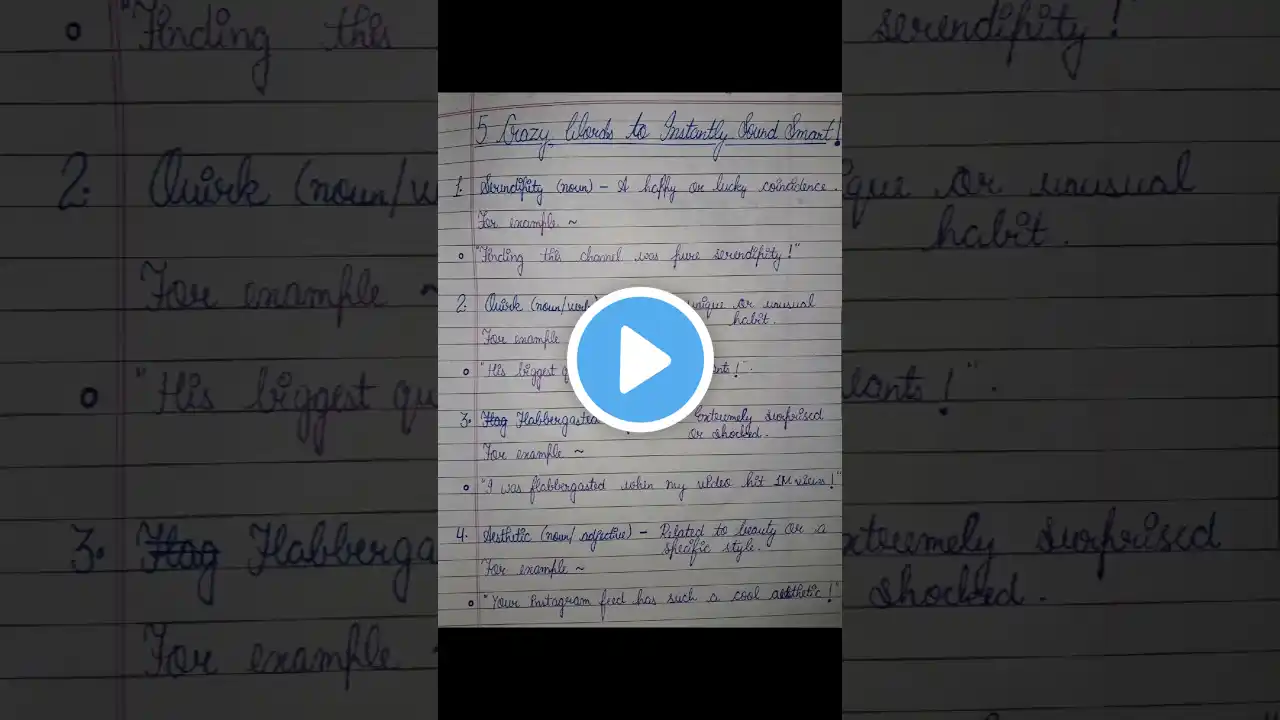 5 Crazy Words to Instantly Sound Smart!
1. Serendipity (noun) – A happy or lucky coincidence.
For example ~
"Finding this channel was pure serendipity!"
2. Quirk (noun/verb) unique or unusual
habit.
For example
"His biggest
3. Flag Flabbergasted Extremely surprised
or shocked.
For example ~
"I was flabbergasted when my video hit 1M views!"
4. Aesthetic (noun/adjective) – Related to beauty or a
specific style.
For example ~
"Your Instagram feed has such a cool aesthetic!"